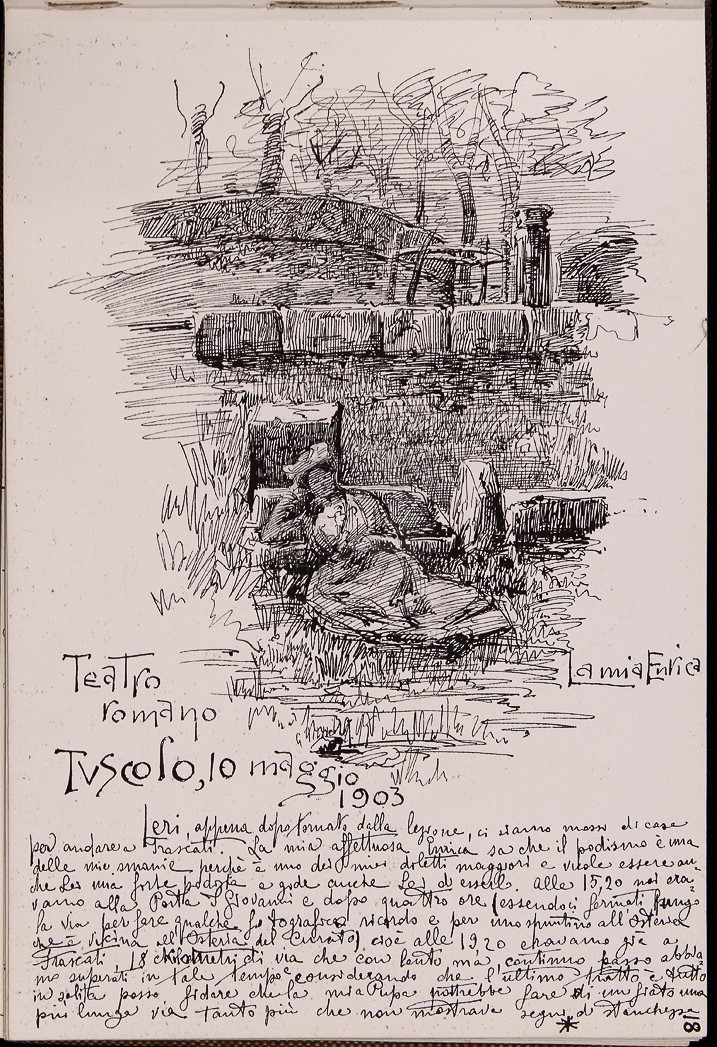 Teatro
romano
La mia Enrica
Tuscolo, 10 maggio
1903
Ieri, appena dopo tornato dalla lezione, ci siamo mossi di casa
per andare a Frascati. La mia affettuosa Enrica sa che il podismo è una
delle mie smanie perchè è uno dei miei diletti maggiori e vuole essere an-
che Lei una forte podista e gode anche Lei d'esserlo. Alle 15,20 noi era-
vamo alla Porta S. Giovanni e dopo quattro ore (essendoci fermati lungo
la via per fare qualche fotografica ricordo e per uno spuntino all'Osteria
che è vicina all'Osteria del Curato) cioè alle 19 20 eravamo già a
Frascati, 18 chilometri di via che con lento ma continuo passo abbia-
mo superati in tale tempo e considerando che l'ultimo tratto è tutto
in salita posso fidare che la mia Pupa potrebbe fare di un fiato una
più lunga via tanto più che non mostrava segni di stanchezza
* 18